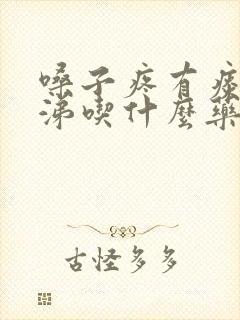 嗓子疼有痰
涕喫什麼藥
古怪多多